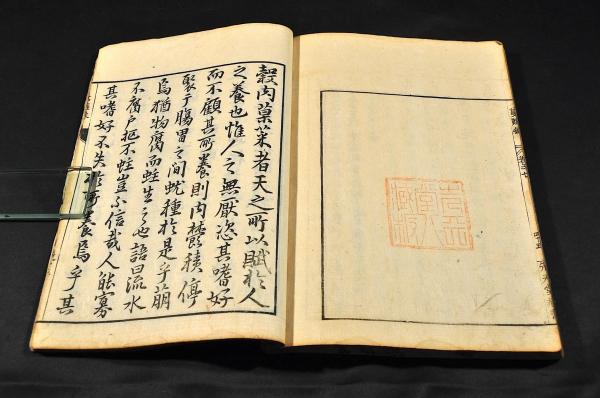 穀肉菓菜者天之所以賦於人
之養也惟人之無厭恣其嗜好
而不顧其所養則内欝積停
聚于腸胃之間蚘種於是乎萌
焉猶物腐而蛀生之也語曰流水
不腐戸枢不蛀豈不信哉人能寡
其嗜好不失於所養焉乎其